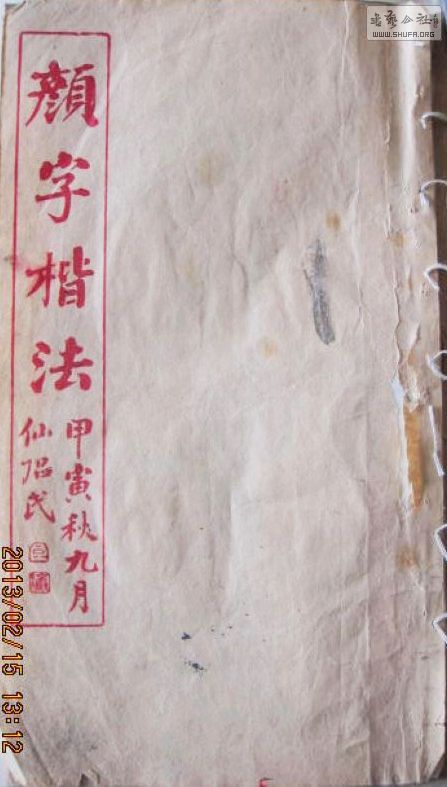 顏字楷法
甲寅秋九月
仙侶氏
書藝公社
WWW.SHUFA.ORG
2013/02/15 13:12